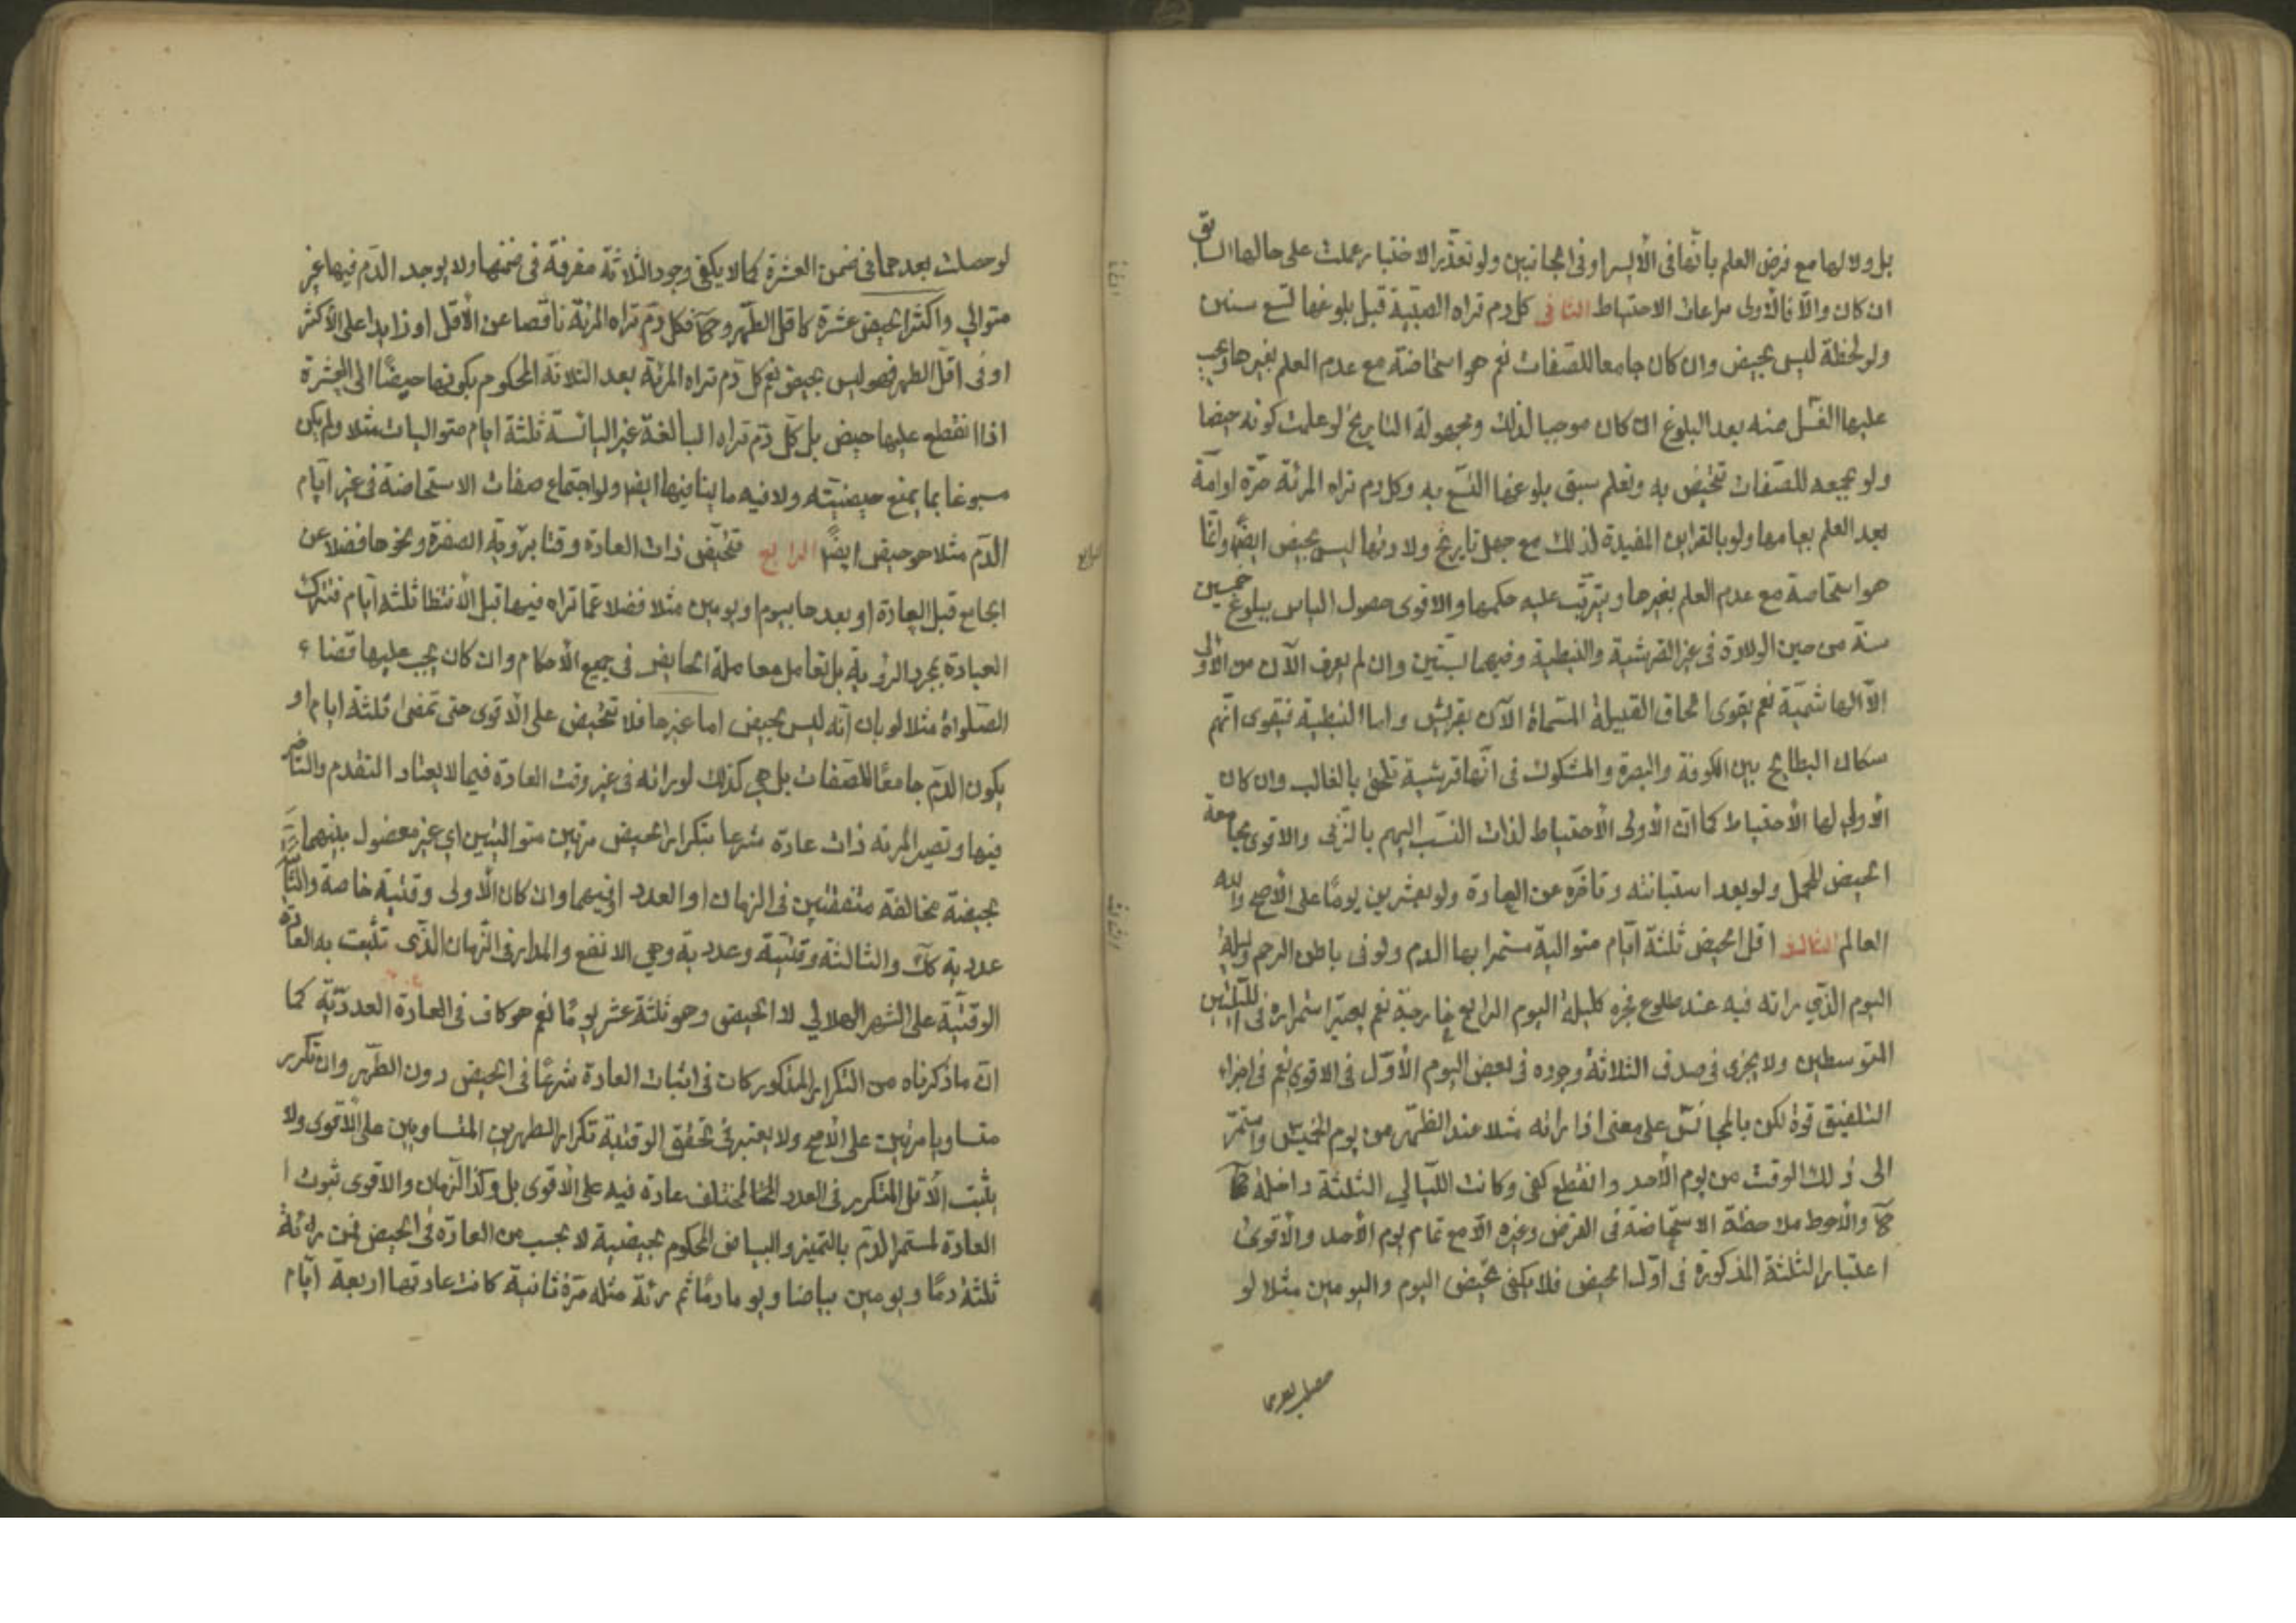 بل ولا لها مع فرض العلم بأنها في الأيسر او في الجانبين ولو تعذر الاختبار عملت على حالها السابق
ان كان والا فالأولى مراعات الاحتياط الثاني كل دم تراه الصبية قبل بلوغها تسع سنين
ولو لحظة ليس بحيض وان كان جامعا للصفات نعم هو استحاضة مع عدم العلم بغيرها ويجب
عليها الغسل منه بعد البلوغ ان كان موجبا لذلك ومجهولة التاريخ لو علمت كونه حيضا
ولو بجمعه للصفات تتحيض به وتعلم سبق بلوغها التسع به وكل دم تراه المرئة حرة او امة
بعد العلم بيأسها ولو بالقراين المفيدة لذلك مع جهل تاريخ ولادتها ليس بحيض ايضا وانما
هو استحاضة مع عدم العلم بغيرها ويترتب عليه حكمها والاقوى حصول الياس ببلوغ خمسين
سنة من حين الولادة في غير القرشية والنبطية وفيهما بستين وان لم يعرف الآن من الأولى
الا الهاشمية نعم يقوى الحاق القبيلة المسماة الآن بقريش واما النبطية فيقوى انهم
سكان البطايح بين الكوفة والبصرة والمشكوك في انها قرشية تلحق بالغالب وان كان
الأولى لها الأحتياط كما ان الأولى الأحتياط لذات النسب اليهم بالزنى والاقوى مجامعة
الحيض للحمل ولو بعد استبانته وتاخره عن العادة ولو بعشرين يوما على الأصح والله
العالم الثالث اقل الحيض ثلثة ايام متوالية مستمرا بها الدم ولو في باطن الرحم وليلة
اليوم الذي راته فيه عند طلوع فجره كليلة اليوم الرابع خارجة نعم يعتبر استمراره في الليلتين
المتوسطين ولا يجزي في صدق الثلاثة وجوده في بعض اليوم الأول في الاقوى نعم في اجزاء
التلفيق قوة لكن بالمجانس على معنى اذا راته مثلا عند الظهر من يوم الخميس واستمر
الى ذلك الوقت من يوم الأحد وانقطع كفى وكانت الليالي الثلثة داخلة
والأحوط ملاحظة الاستحاضة في الفرض وغيره الا مع تمام يوم الأحد والأقوى
اعتبار الثلثة المذكورة في اول الحيض فلا يكفي تحيض اليوم واليومين مثلا لو
لو حصلت بعدهما في ضمن العشرة كما لا يكفي وجود الثلاثة مفرقة في ضمنها ولا يوجد الدم فيها غير
متوالي واكثر الحيض عشرة كاقل الطهر فكل دم تراه المرئة ناقصا عن الأقل او زايدا على الأكثر
او في اقل الطهر فهو ليس بحيض نعم كل دم تراه المرئة بعد الثلاثة المحكوم بكونها حيضا الى العشرة
اذا انقطع عليها حيض بل كل دم تراه البالغة غير اليائسة ثلثة ايام متواليات مثلا ولم يكن
مسبوغا بما يمنع حيضيته ولا فيه ما ينافيها ايضا ولو اجتماع صفات الاستحاضة في غير ايام
الدم مثلا هو حيض ايضا الرابع تتحيض ذات العادة وقتا برؤية الصفرة ونحوها فضلا عن
الجامع قبل العادة او بعدها بيوم او يومين مثلا فضلا عما تراه فيها قبل الأنتظار ثلثة ايام فتترك
العبادة بمجرد الرؤية بل تعامل معاملة الحايض في جميع الأحكام وان كان يجب عليها قضاء
الصلواة مثلا لو بان انه ليس بحيض اما غيرها فلا تتحيض على الأقوى حتى تمضى ثلثة ايام او
يكون الدم جامعا للصفات بل هي كذلك لو راته في غير وقت العادة فيما لا يعتاد التقدم والتاخر
فيها وتصير المرئة ذات عادة شرعا بتكرار الحيض مرتين متواليتين اي غير مفصول بينهما
بحيضة مخالفة متفقتين في الزمان او العدد او فيهما وان كان الأولى وقتية خاصة والثانية
عددية كك والثالثة وقتية وعددية وهي الانفع والمدار في الزمان الذي تثبت به العادة
الوقتية على الشهر الهلالي لا الحيضي وهو ثلثة عشر يوما نعم هو كاف في العادة العددية كما
ان ما ذكرناه من التكرار المذكور كاف في اثبات العادة شرعا في الحيض دون الطهر وان تكرر
متساويا مرتين على الأصح ولا يعتبر في تحقق الوقتية تكرار الطهرين المتساويين على الأقوى ولا
يثبت الأقل المتكرر في العدد المختلف عادة فيه على الأقوى بل وكذا الزمان والاقوى ثبوت
العادة لمستمر الدم بالتميز والبياض المحكوم بحيضية لا يحسب من العادة في الحيض فمن رائة
ثلثة دما ويومين بياضا ويوما دما ثم رئة مثله مرة ثانية كانت عادتها اربعة ايام